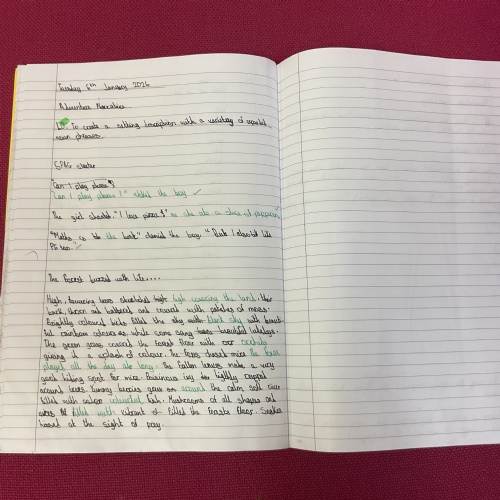 Tuesday 6th January 2026
Adventure Narrative
LO: To create a setting description with a variety of expanded
noun phrases.
SPAG starter
"Can I play please"?
"Can I play please?" asked the boy.
The girl shouted, "I love pizza!" as she ate a slice of pepperoni
"Maths is the best" the boy. "But I also like
The forest buzzed with life....
High, towering trees stretched high covering the land. their
bark, thick and battered and covered with patches of moss.
Brightly coloured birds filled the sky with with beauti-
ful rainbow colours while some sang beautiful lullabys.
The green grass covered the forest floor with over
giving it a splash of colour. The foxes chased mice
played all the day long. The fallen leaves make a very
good hiding spot for mice. Poisonous ivy tightly wrapped
around trees. Yummy berries grow on around the calm, soft river
filled with colourful fish. Mushrooms of all shapes and
sizes filled with vibrant filled the forest floor. Snakes
at the sight of prey.